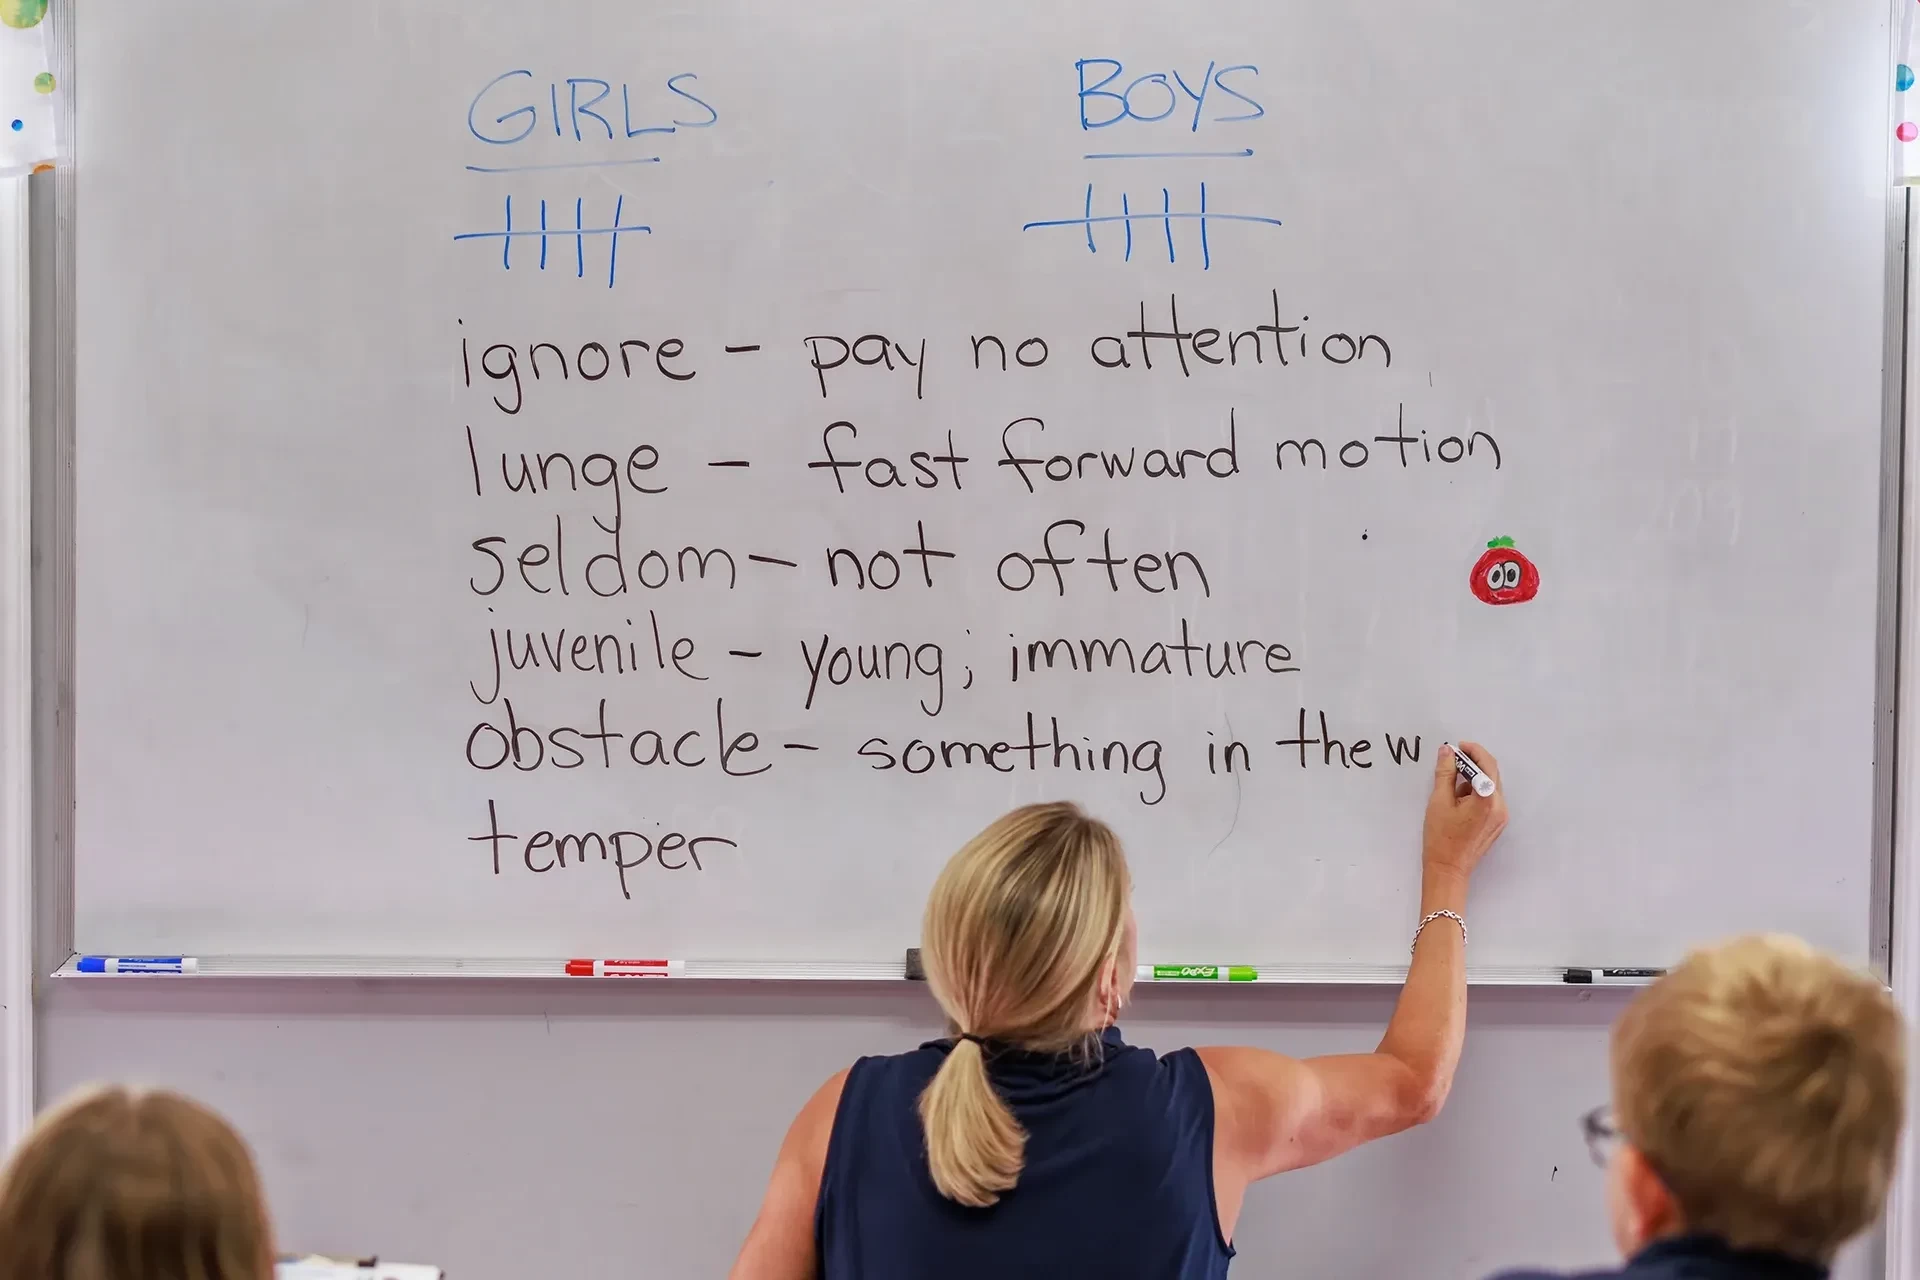 GIRLS BOYS
ignore - pay no attention
lunge - fast forward motion
seldom - not often
juvenile - young; immature
obstacle - something in the w
temper
EXPO